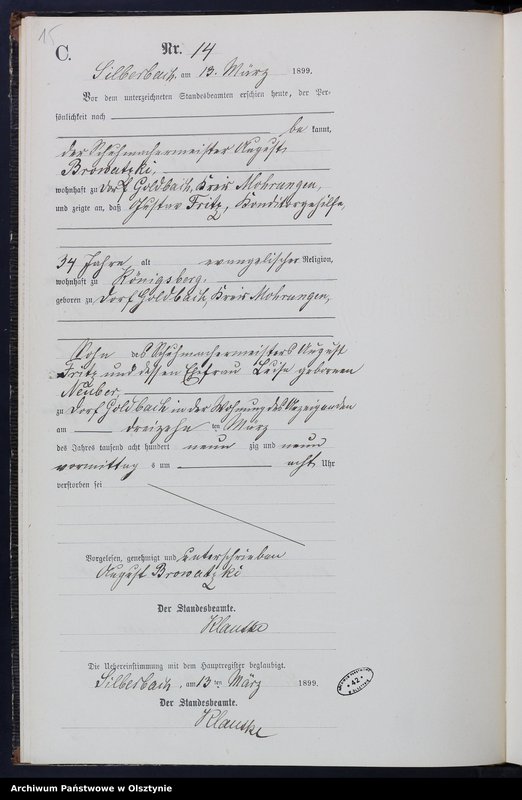 15
C.
Nr. 14
Silberbach, am 13. März 1899.
Vor dem unterzeichneten Standesbeamten erschien heute, der Per-
sönlichkeit nach
be kannt,
der Schuhmachermeister August
Browatzki,
wohnhaft zu Dorf Goldbach, Kreis Mohrungen,
und zeigte an, daß Gustav Fritz, Konditorgehülfe,
34 Jahre alt evangelischer Religion,
wohnhaft zu Königsberg,
geboren zu Dorf Goldbach, Kreis Mohrungen,
Sohn des Schuhmachermeisters August
Fritz und dessen Ehefrau Luise geborenen
Neuber,
zu Dorf Goldbach in der Wohnung des Anzeigenden
am dreizehn ten März
des Jahres tausend acht hundert neun zig und neun
vormittag s um acht Uhr
verstorben sei
Vorgelesen, genehmigt und unterschrieben
August Browatzki
Der Standesbeamte.
Klautke
Die Uebereinstimmung mit dem Hauptregister beglaubigt.
Silberbach, am 13 ten März 1899.
Der Standesbeamte.
Klautke
* 42 *
Archiwum Państwowe w Olsztynie